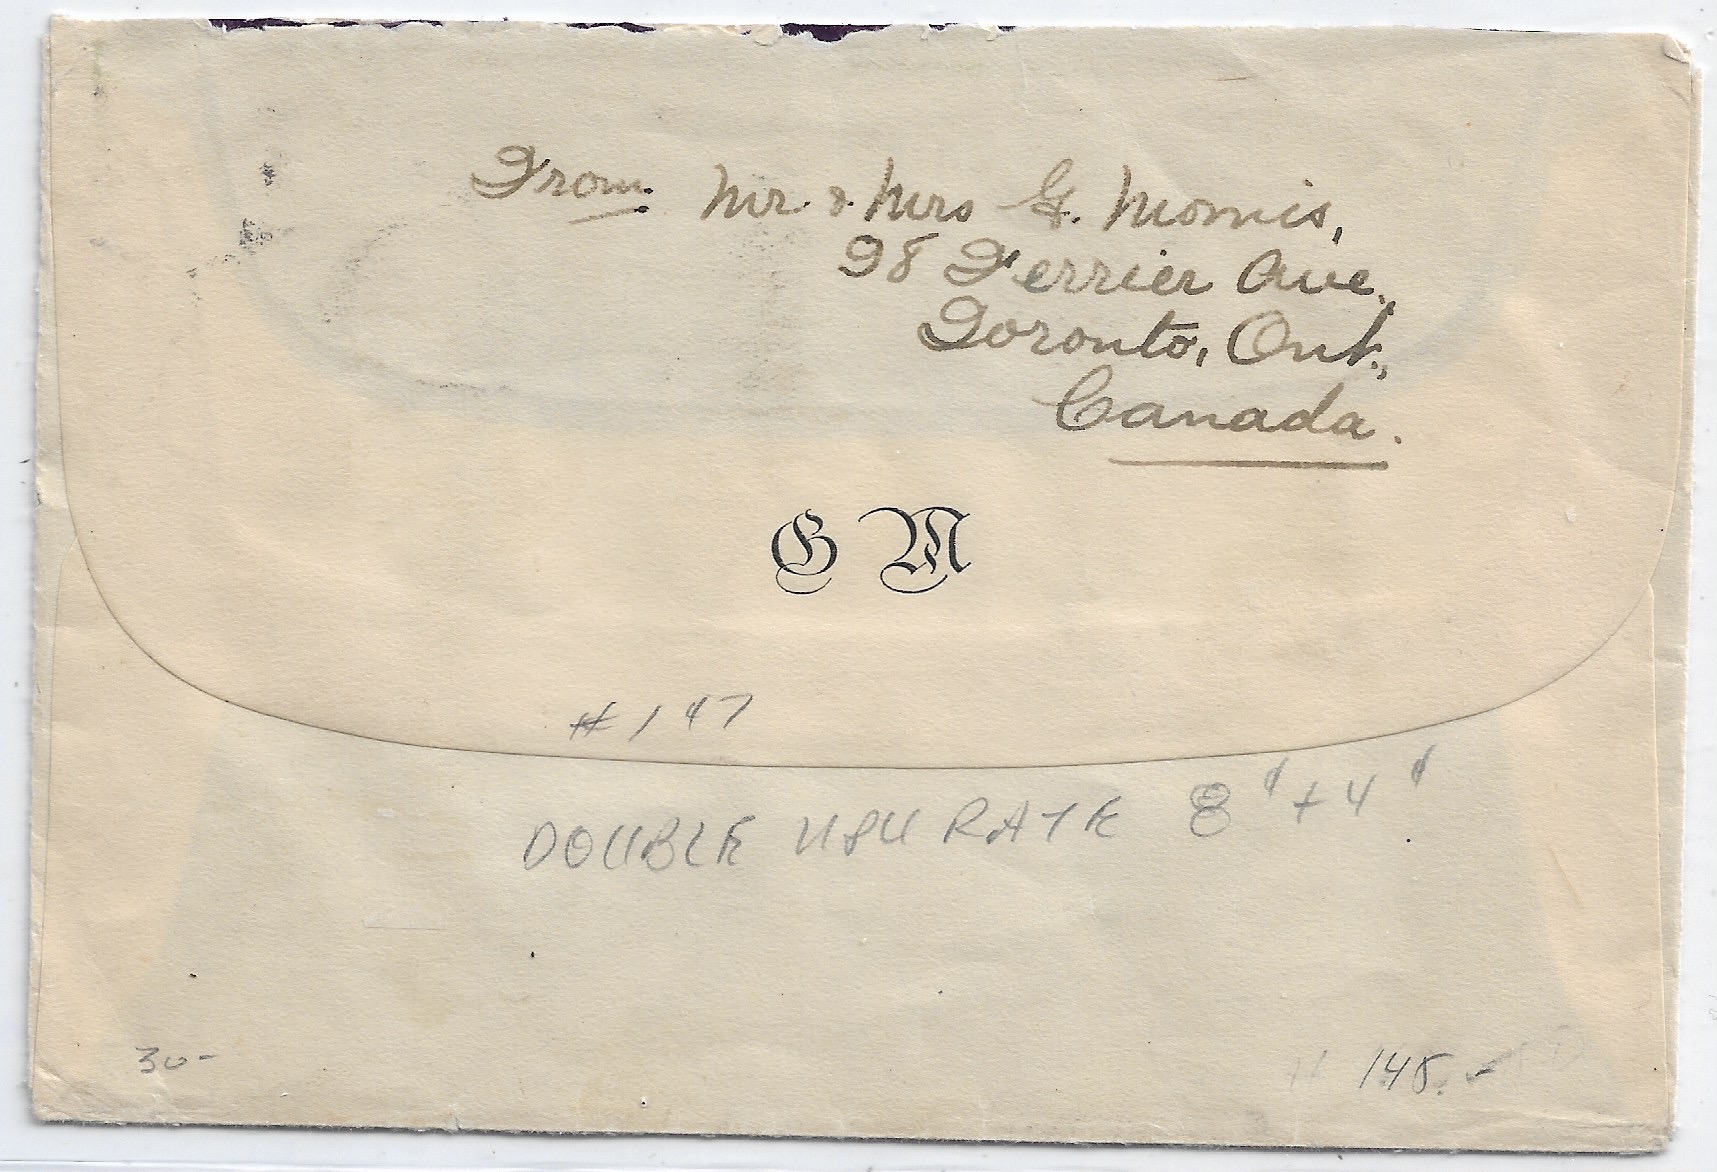 From Mr & Mrs G. Morris,
98 Ferrier Ave.,
Toronto, Ont.,
Canada.
G M
#147
DOUBLE UPU RATE 8¢ + 4¢
30-
145.-